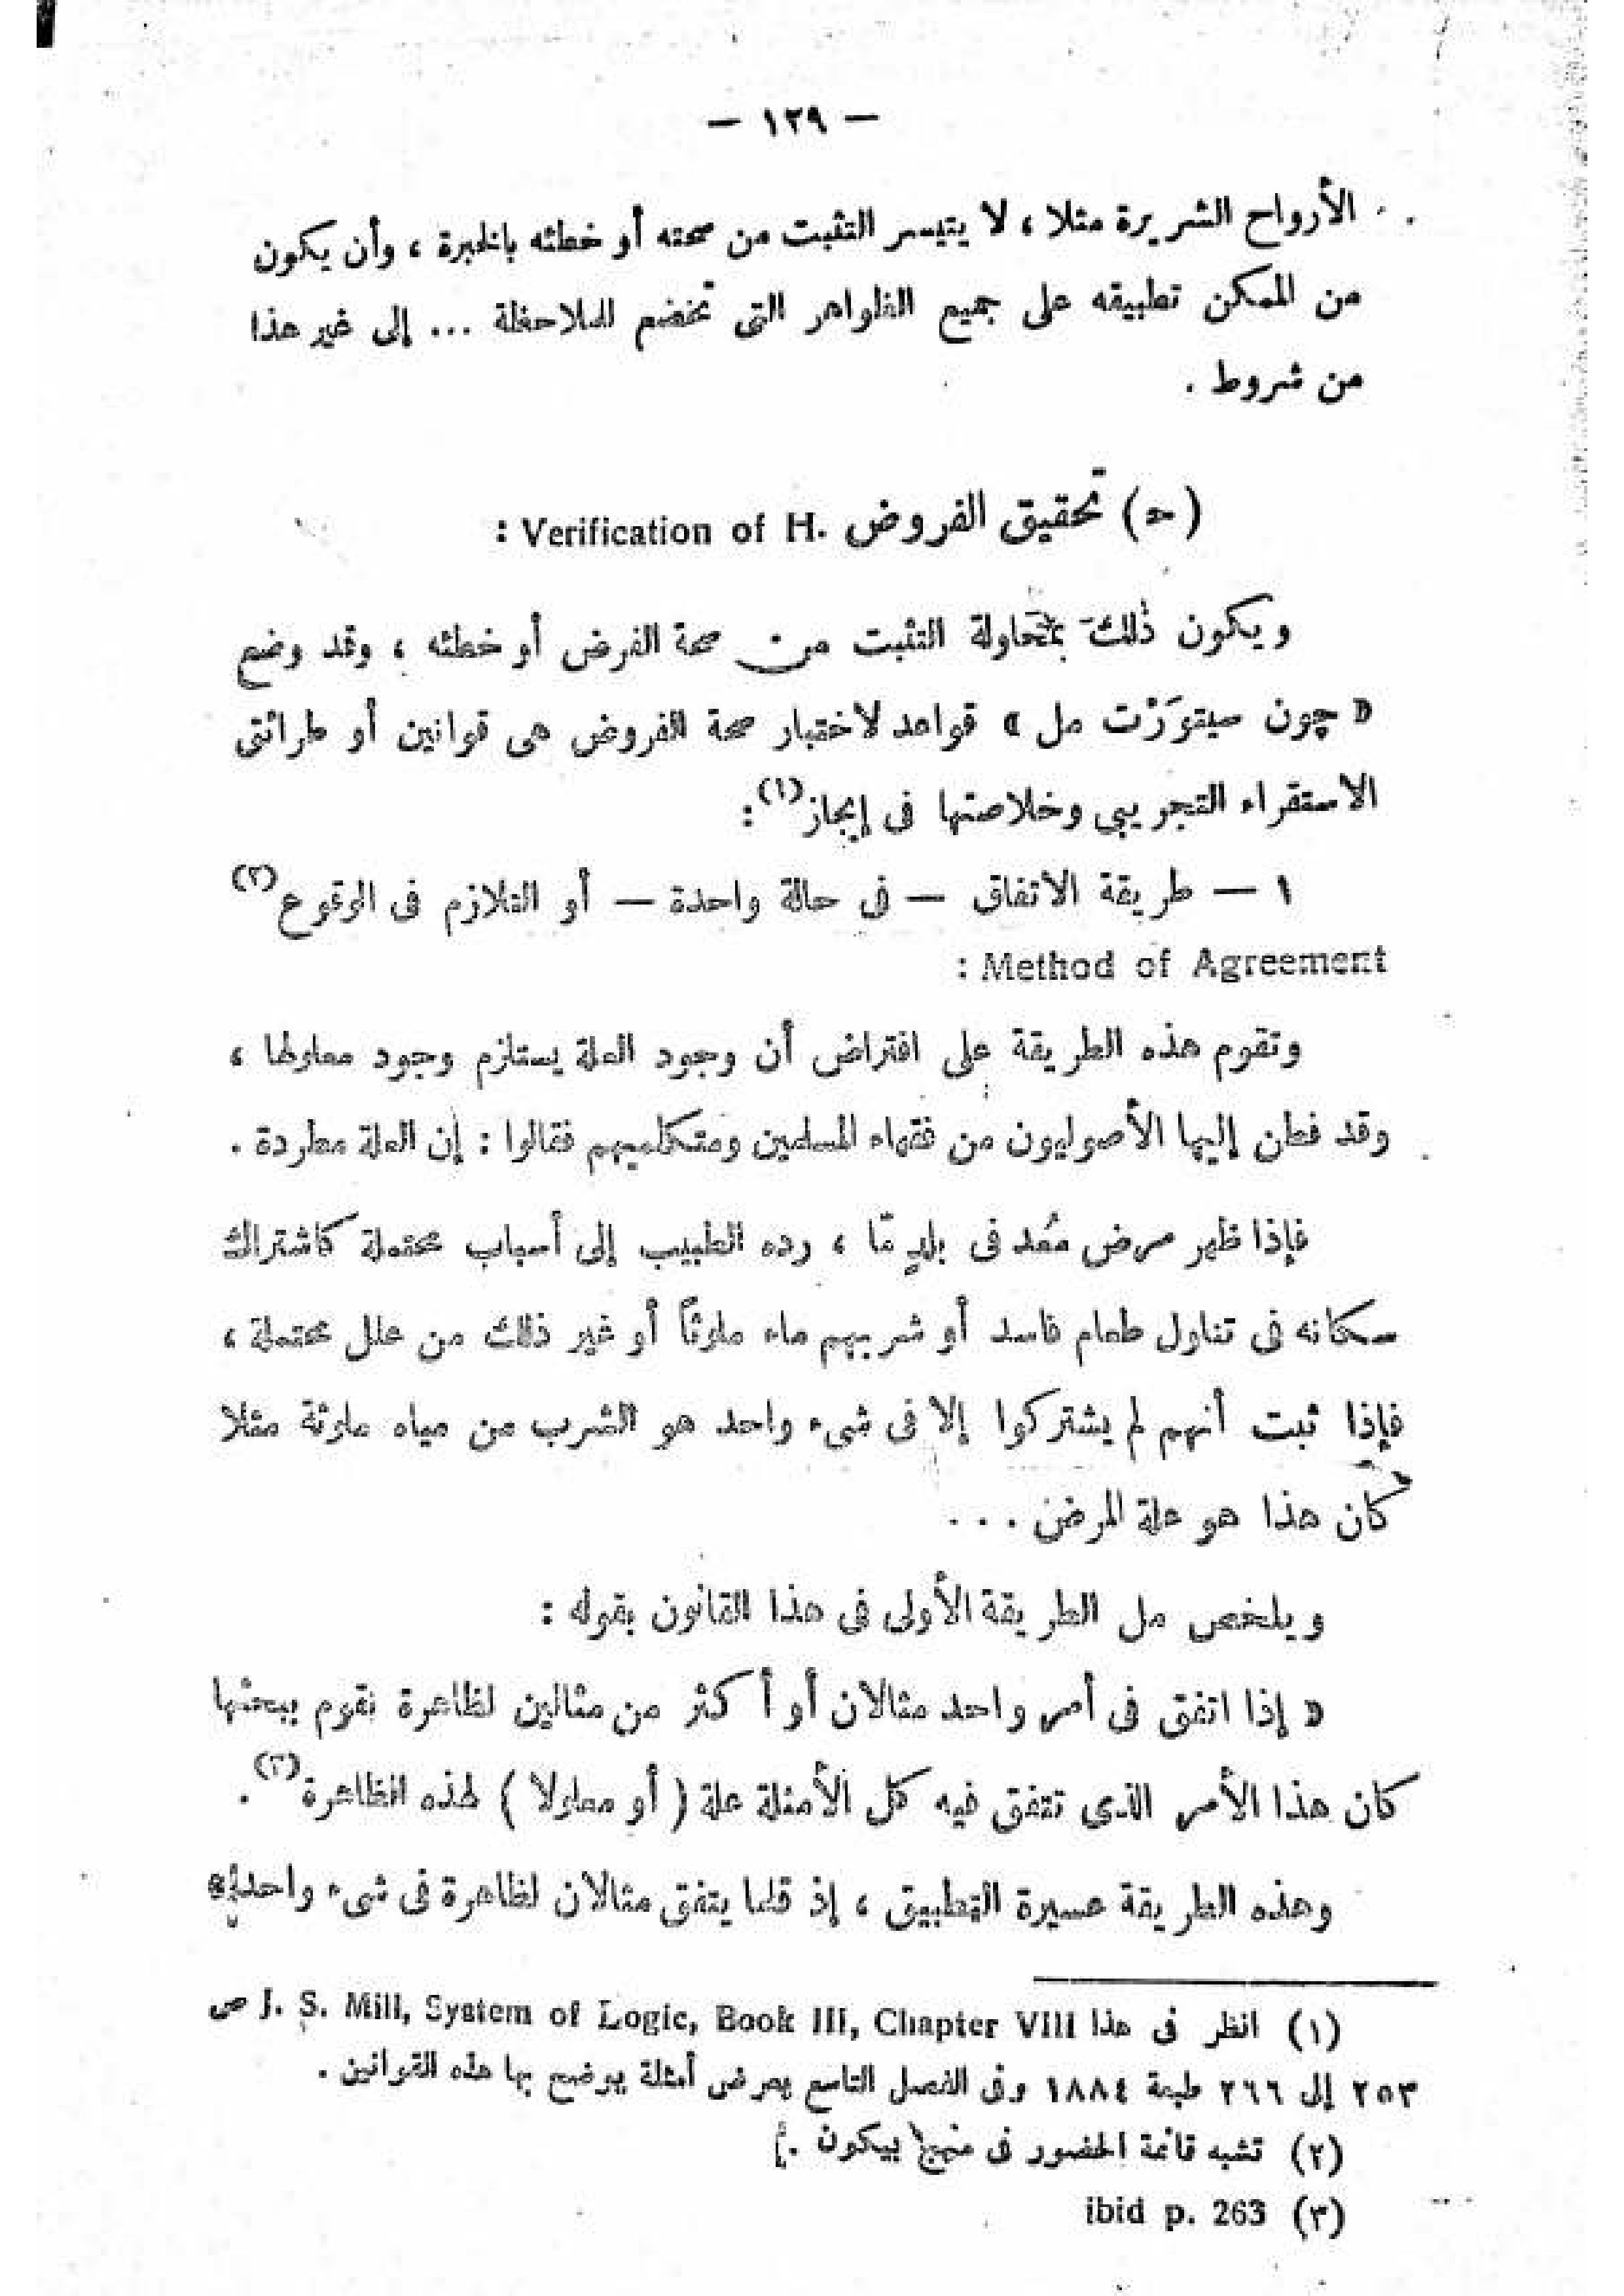 — ١٢٩ —
الأرواح الشريرة مثلا ، لا يتيسر التثبت من صحته أو خطئه بالخبرة ، وأن يكون
من الممكن تطبيقه على جميع الظواهر التى تخضع للملاحظة ... إلى غير هذا
من شروط .
(ح) تحقيق الفروض Verification of H. :
ويكون ذلك بمحاولة التثبت من صحة الفرض أو خطئه ، وقد وضع
« چون سيتوَرْت مل » قواعد لاختبار صحة الفروض هى قوانين أو طرائق
الاستقراء التجريبى وخلاصتها فى إيجاز(١) :
١ — طريقة الاتفاق — فى حالة واحدة — أو التلازم فى الوقوع(٢)
Method of Agreement :
وتقوم هذه الطريقة على افتراض أن وجود العلة يستلزم وجود معلولها ،
وقد فطن إليها الأصوليون من فقهاء المسلمين ومتكلميهم فقالوا : إن العلة مطردة .
فإذا ظهر مرض مُعد فى بلدٍ مّا ، رده الطبيب إلى أسباب محتملة كاشتراك
سكانه فى تناول طعام فاسد أو شربهم ماء ملوثاً أو غير ذلك من علل محتملة ،
فإذا ثبت أنهم لم يشتركوا إلا فى شىء واحد هو الشرب من مياه ملوثة مثلا
كان هذا هو علة المرض ...
ويلخص مل الطريقة الأولى فى هذا القانون بقوله :
« إذا اتفق فى أمر واحد مثالان أو أكثر من مثالين لظاهرة نقوم ببحثها
كان هذا الأمر الذى تتفق فيه كل الأمثلة علة ( أو معلولا ) لهذه الظاهرة(٣) .
وهذه الطريقة عسيرة التطبيق ، إذ قلما يتفق مثالان لظاهرة فى شىء واحد
(١) انظر فى هذا J. S. Mill, System of Logic, Book III, Chapter VIII ص
٢٥٣ إلى ٢٦٦ طبعة ١٨٨٤ وفى الفصل التاسع يعرض أمثلة يوضح بها هذه القوانين .
(٢) تشبه قائمة الحضور فى منهج بيكون .
(٣) ibid p. 263